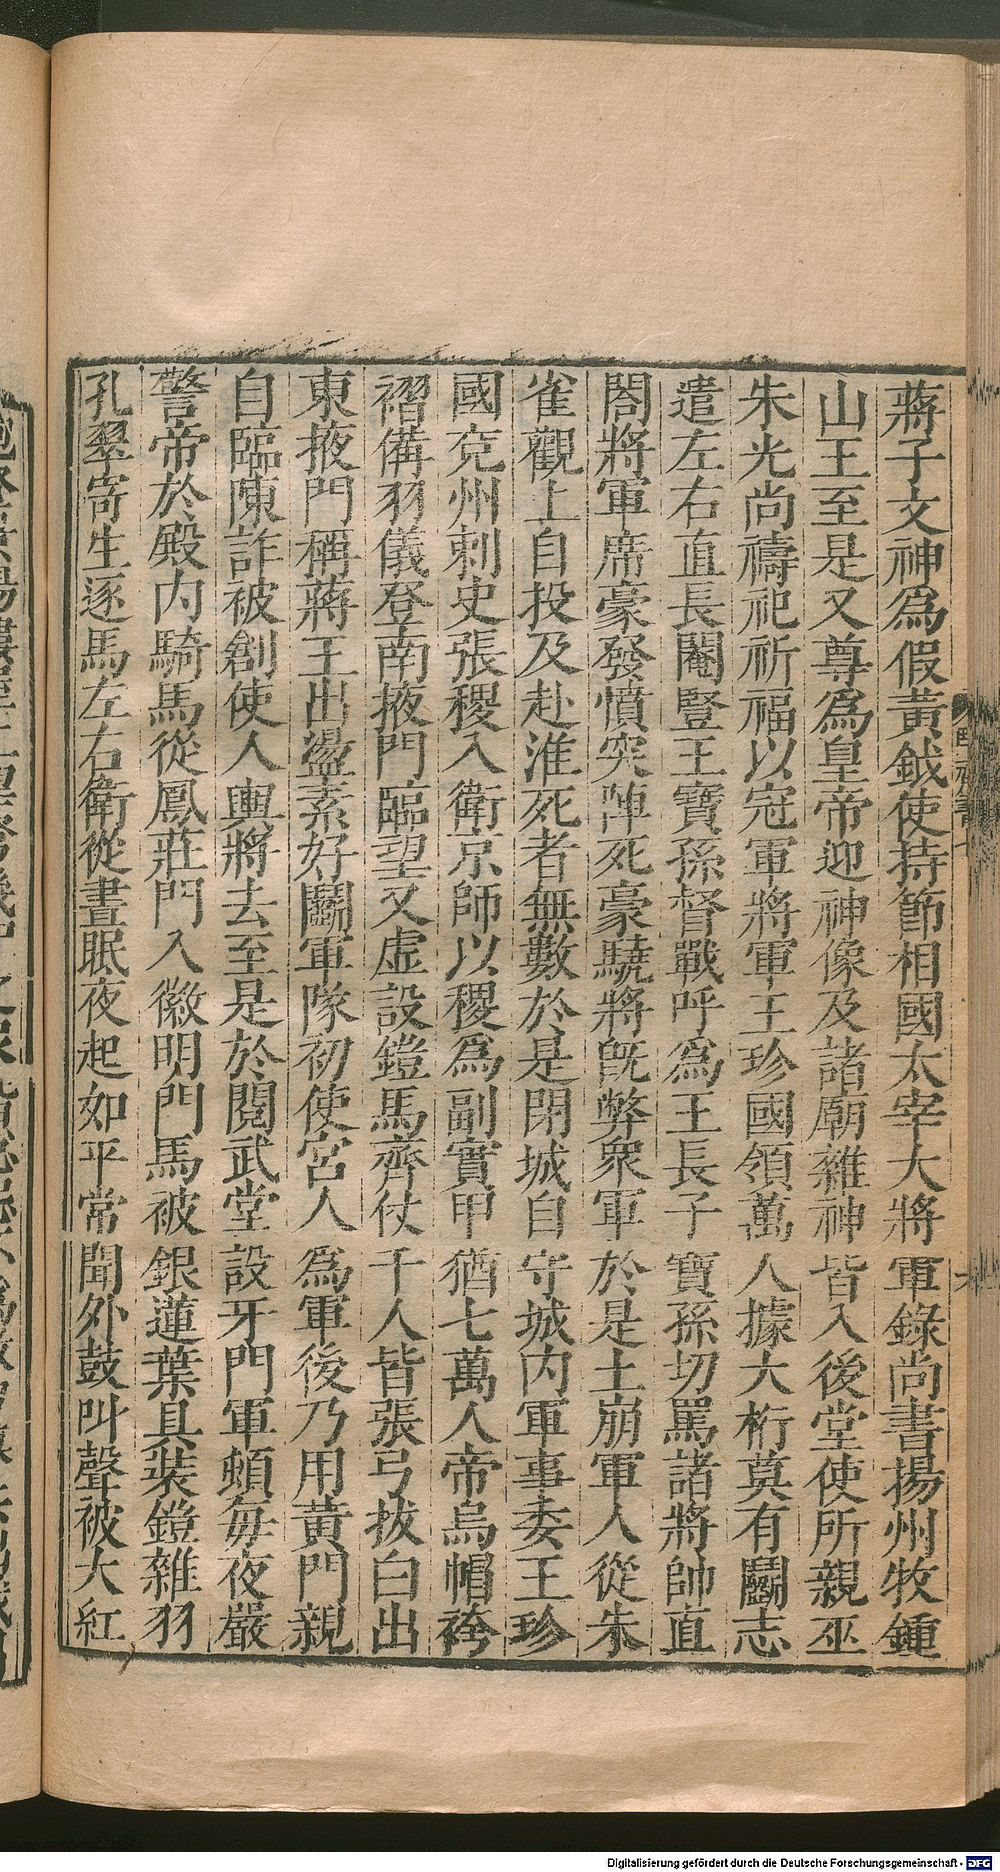 蔣子文神爲假黃鉞使持節相國太宰大將軍錄尚書揚州牧鍾
山王至是又尊爲皇帝迎神像及諸廟雜神皆入後堂使所親巫
朱光尚禱祀祈福以冠軍將軍王珍國領萬人據大桁莫有鬭志
遣左右直長閹豎王寶孫督戰呼爲王長子寶孫切罵諸將帥直
閤將軍席豪發憤突陣死豪驍將旣弊衆軍於是土崩軍人從朱
雀觀上自投及赴淮死者無數於是閉城自守城內軍事委王珍
國兗州刺史張稷入衛京師以稷爲副實甲猶七萬人帝烏帽袴
褶備羽儀登南掖門臨望又虛設鎧馬齊仗千人皆張弓拔白出
東掖門稱蔣王出盪素好鬭軍隊初使宮人爲軍後乃用黃門親
自臨陳詐被創使人輿將去至是於閱武堂設牙門軍頓每夜嚴
警帝於殿內騎馬從鳳莊門入徽明門馬被銀蓮葉具裝鎧雜羽
孔翠寄生逐馬左右衛從晝眠夜起如平常聞外鼓叫聲被大紅
Digitalisierung gefördert durch die Deutsche Forschungsgemeinschaft - DFG